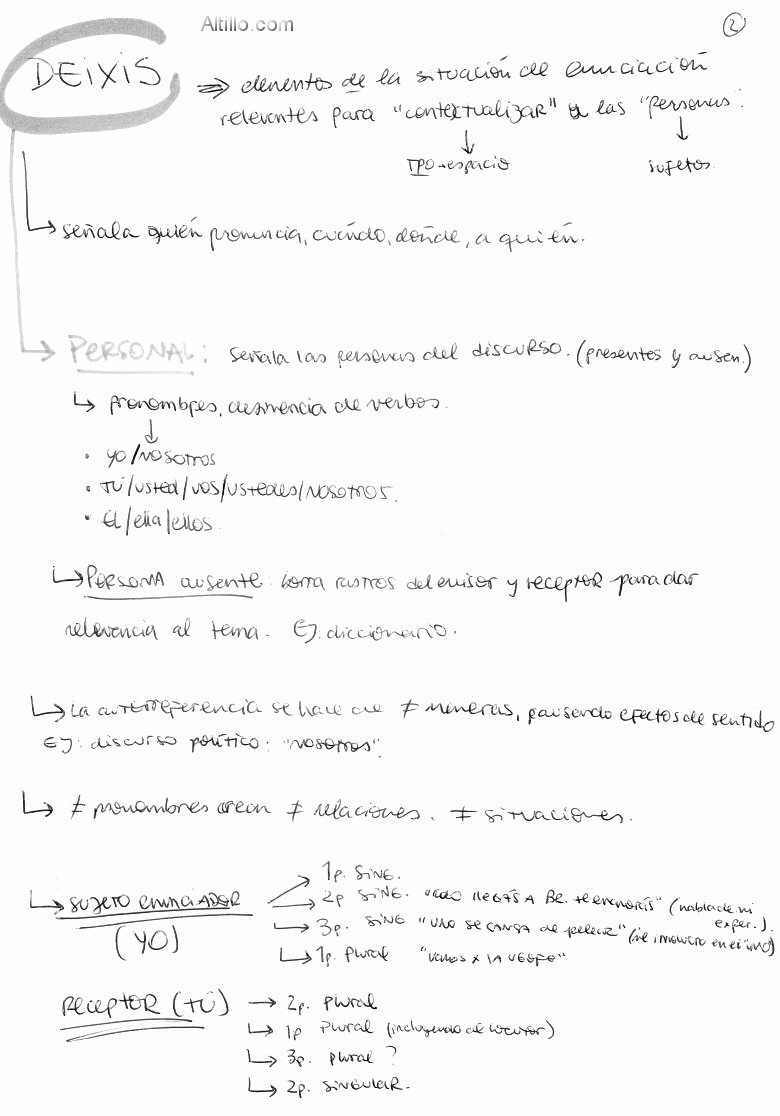 Altillo.com
2
DEIXIS ⇒ elementos de la situación de enunciación
relevantes para "contextualizar" a las "personas".
↓ ↓
TPO + espacio sujetos
↳ señala quién pronuncia, cuándo, dónde, a quién.
→ PERSONAL: señala las personas del discurso. (presentes y ausen.)
↳ pronombres, desinencia de verbos.
↓
• yo/nosotros
• TÚ/usted/vos/ustedes/nosotros.
• Él/ella/ellos
↳ PERSONA ausente: borra rastros del emisor y receptor para dar
relevancia al tema. Ej: diccionario.
↳ La autorreferencia se hace de ≠ maneras, causando efectos de sentido
Ej: discurso político: "nosotros".
↳ ≠ pronombres crean ≠ relaciones. ≠ situaciones.
↳ sujeto enunciador (YO)
→ 1p. Sing.
→ 2p Sing. llegás a te (habla de mi exper.).
↳ 3p. Sing "uno se cansa de pelear" (se en el)
↳ 1p. Plural "vamos x la"
RECEPTOR (TÚ) → 2p. Plural
↳ 1p Plural (incluyendo al locutor)
↳ 3p. plural ?
↳ 2p. singular.